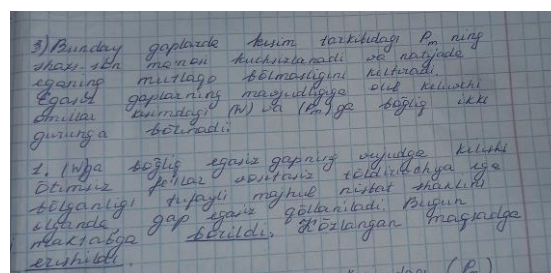 3) Bunday gaplarda kesim tarkibidagi Pm ning
shaxs-son ma'nosi kuchsizlanadi va natijada
eganing mutlaqo bo'lmasligini keltiradi.
Egasiz gaplarning mavjudligiga olib keluvchi
omillar kesimdagi (W) va (Pm)ga bog'liq ikki
guruhga bo'linadi:
1. (W)ga bog'liq egasiz gapning vujudga kelishi
Otimsiz fe'llar vositasiz to'ldiruvchiga ega
bo'lganligi tufayli majhul nisbat shaklini
olganda gap egasiz qo'llaniladi. Bugun
maktabga borildi. Ko'zlangan maqsadga
erishildi.